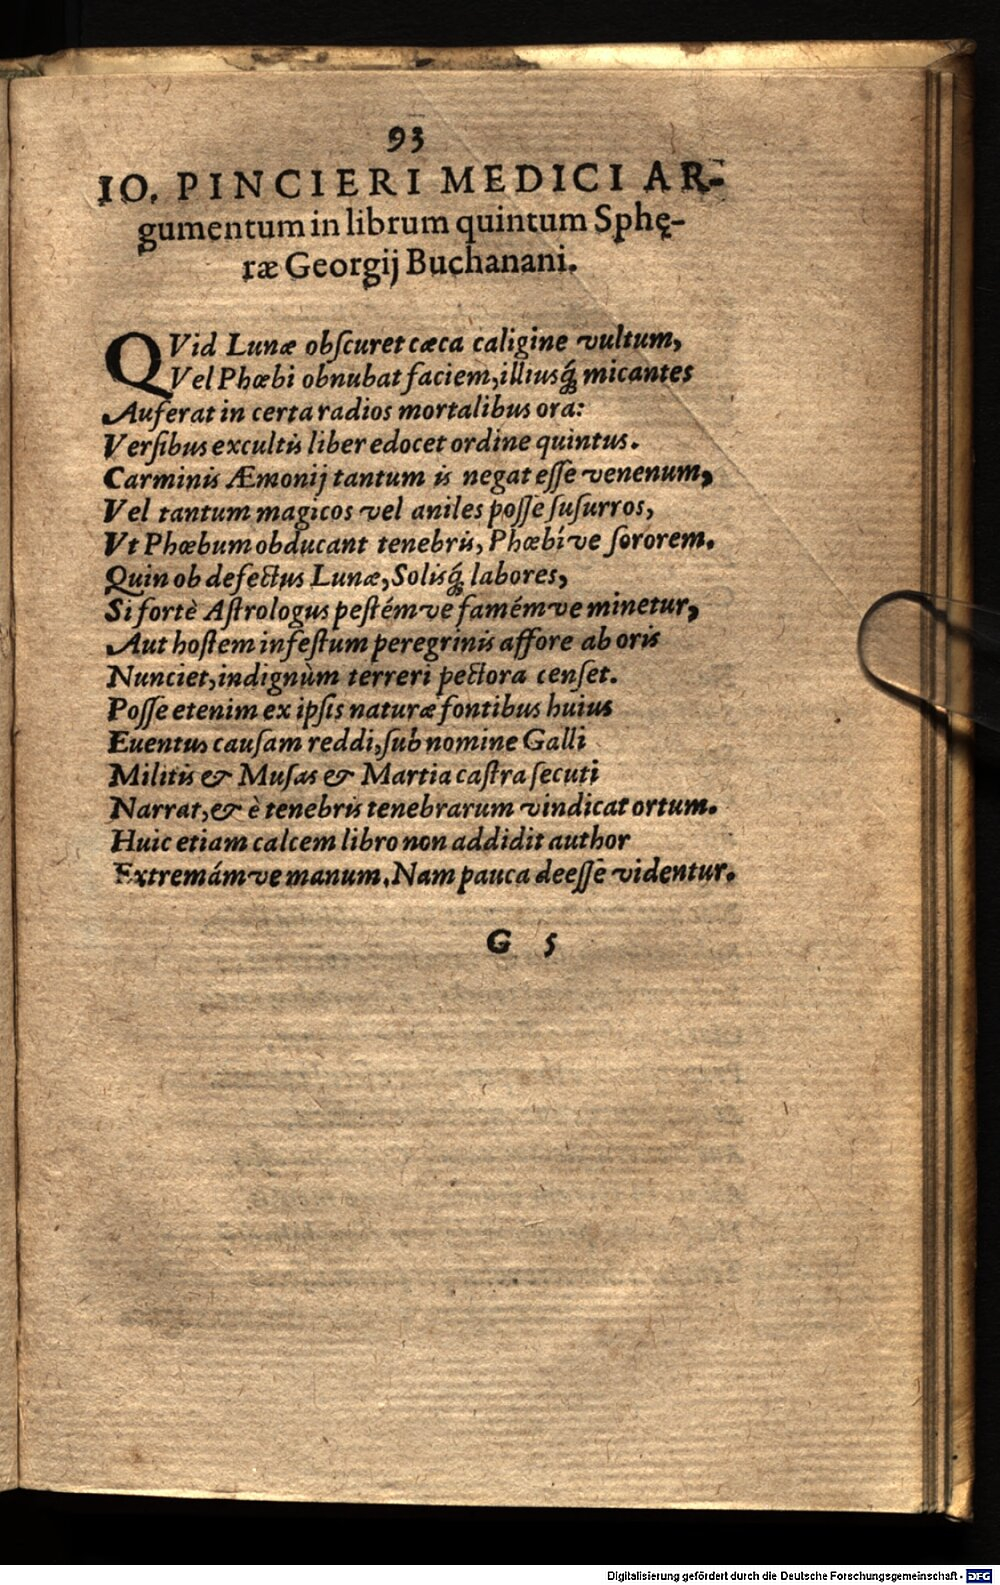 93
IO. PINCIERI MEDICI AR-
gumentum in librum quintum Sphę-
ræ Georgij Buchanani.
QVid Lunæ obſcuret cæca caligine vultum,
Vel Phœbi obnubat faciem, illiusq́; micantes
Auferat in certa radios mortalibus ora:
Verſibus excultis liber edocet ordine quintus.
Carminis Æmonij tantum is negat eſſe venenum,
Vel tantum magicos vel aniles poſſe ſuſurros,
Vt Phœbum obducant tenebris, Phœbive ſororem.
Quin ob defectus Lunæ, Solisq́; labores,
Si fortè Aſtrologus peſtémve famémve minetur,
Aut hoſtem infeſtum peregrinis affore ab oris
Nunciet, indignùm terreri pectora cenſet.
Poſſe etenim ex ipſis naturæ fontibus huius
Euentus cauſam reddi, ſub nomine Galli
Militis & Muſas & Martia caſtra ſecuti
Narrat, & è tenebris tenebrarum vindicat ortum.
Huic etiam calcem libro non addidit author
Extremámve manum. Nam pauca deeſſe videntur.
G 5
Digitalisierung gefördert durch die Deutsche Forschungsgemeinschaft - DFG